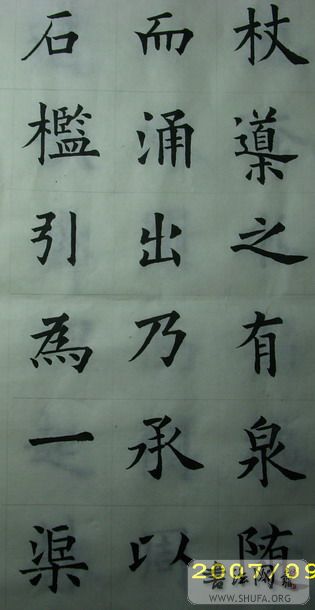 杖導之有泉陏
而涌出乃承以
石檻引為一渠
2007/09
WWW.SHUFA.ORG